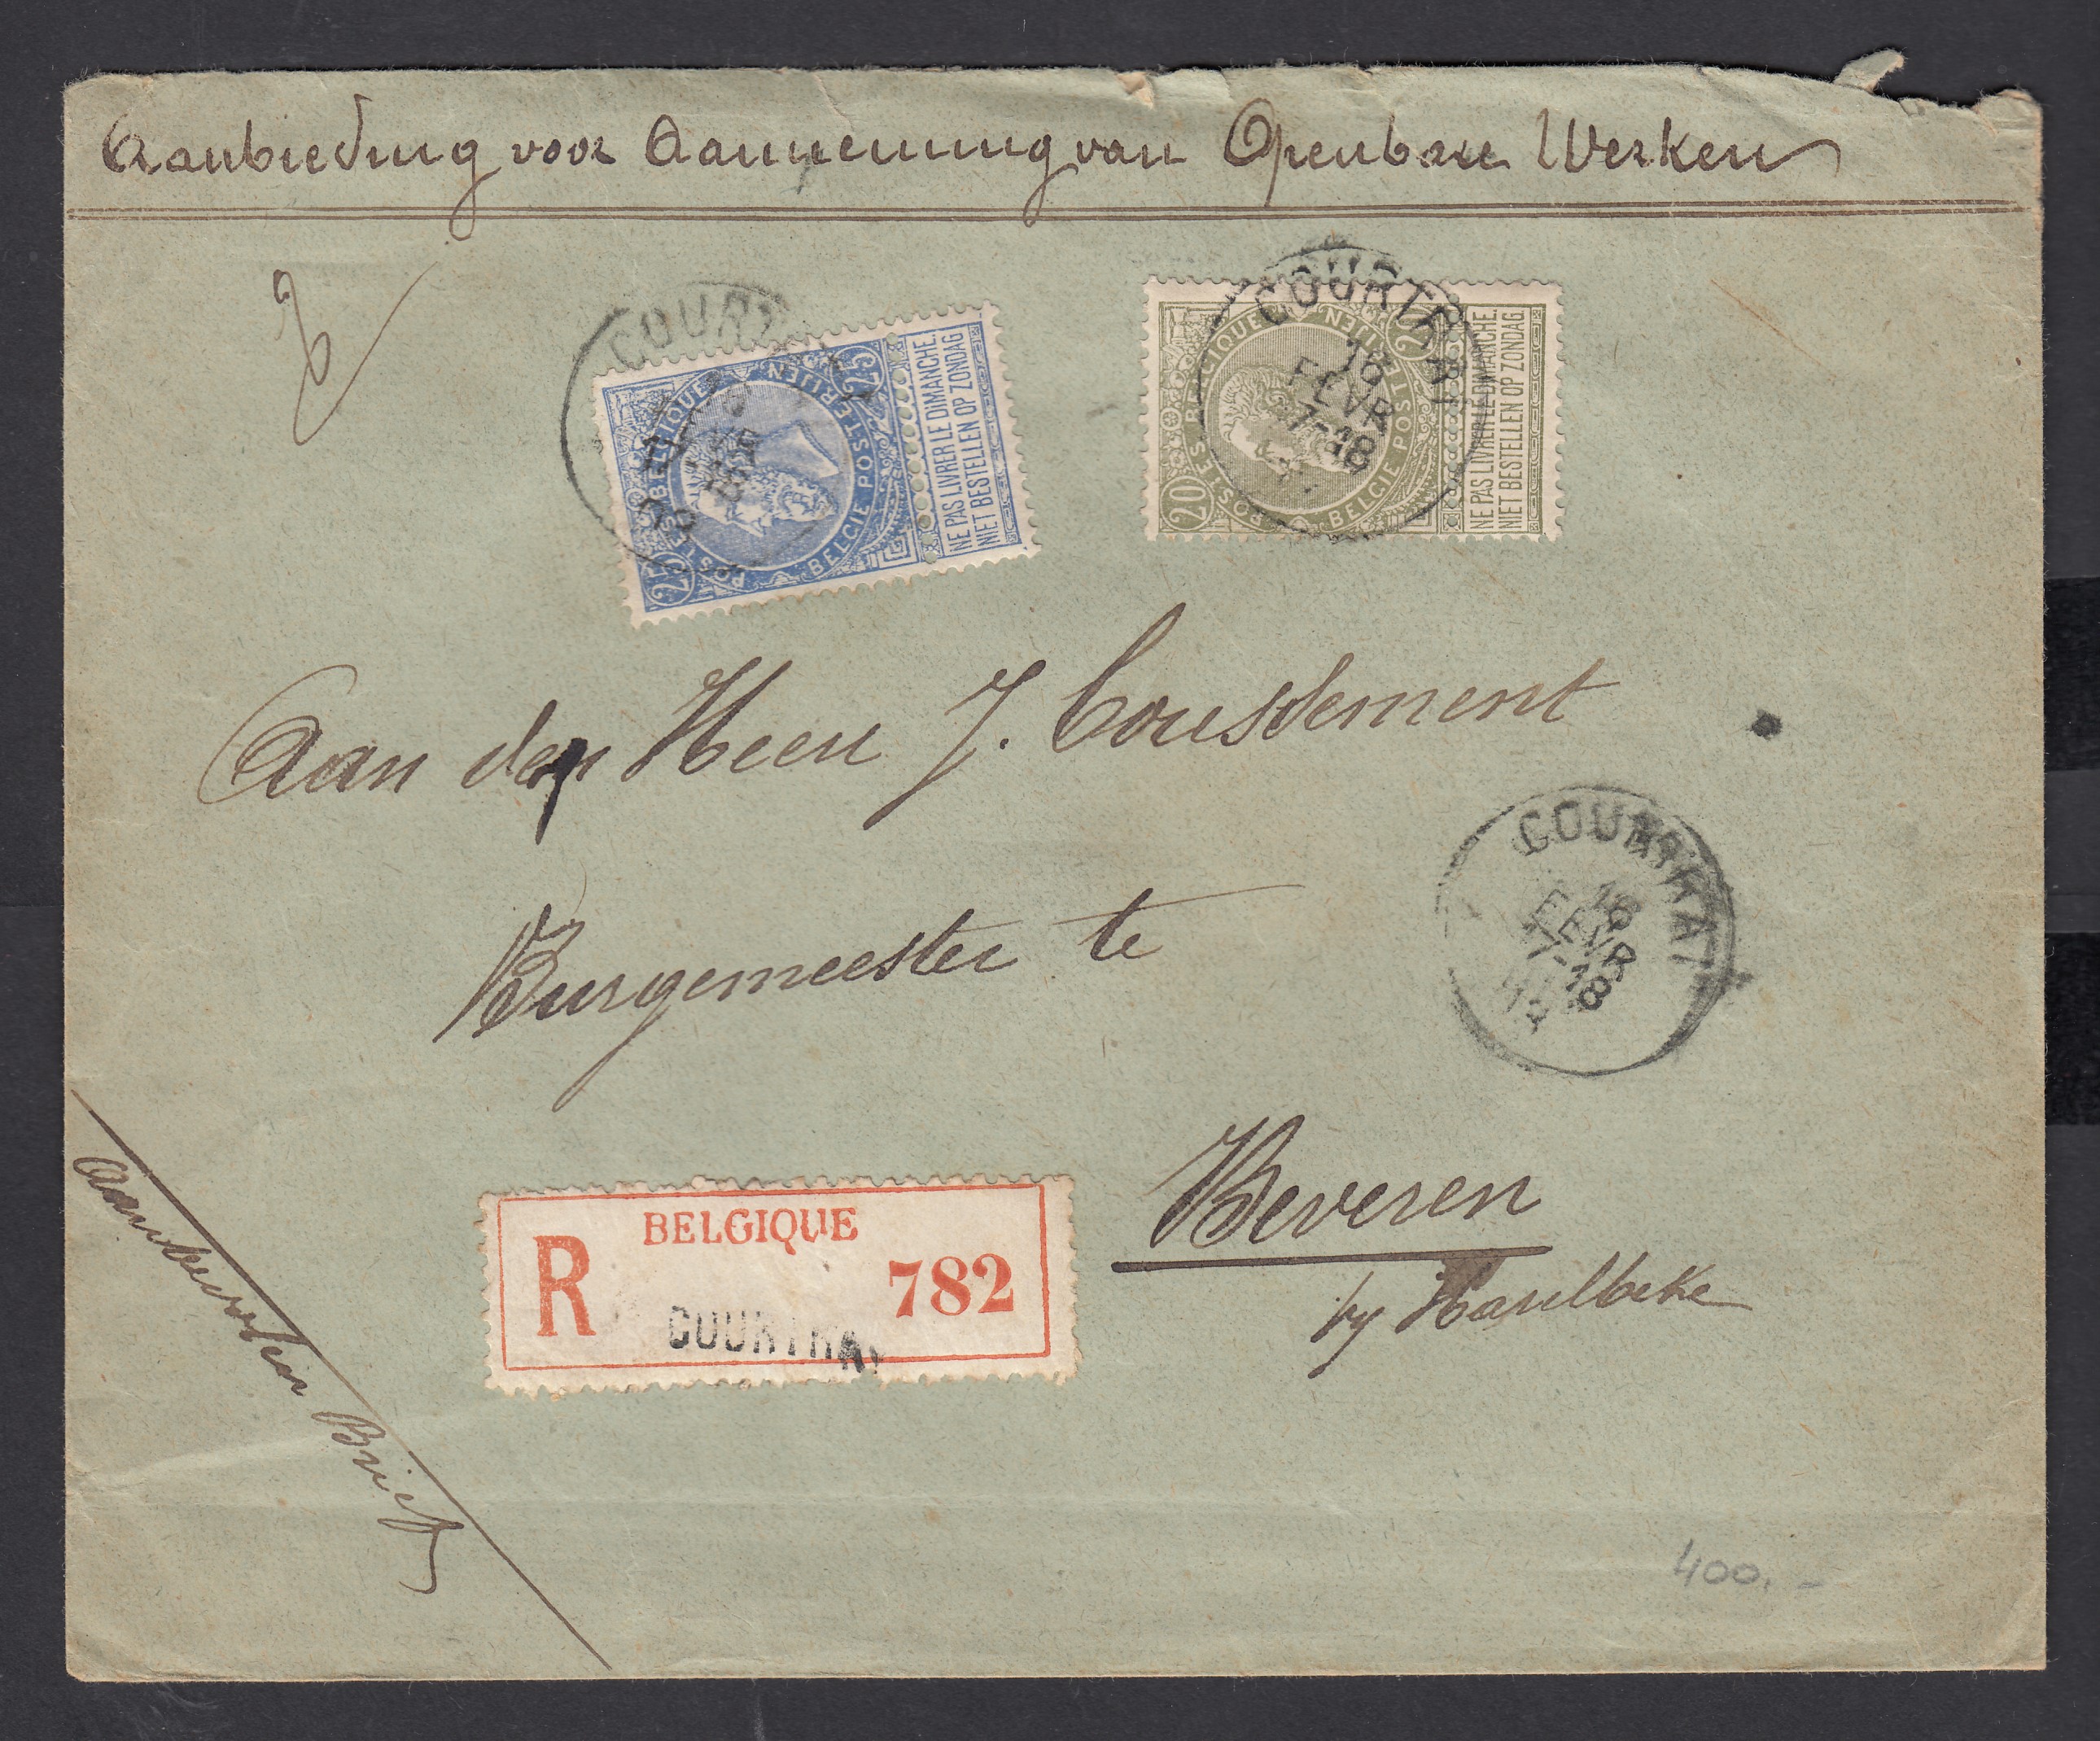 Aanbieding voor Aanneming van Openbare Werken
COURT
25 POSTES BELGIQUE 25
BELGIE POSTERIJEN
NE PAS LIVRER LE DIMANCHE.
NIET BESTELLEN OP ZONDAG
COURTRAI
16
FEVR
7-18
20 POSTES BELGIQUE 20
BELGIE POSTERIJEN
NE PAS LIVRER LE DIMANCHE.
NIET BESTELLEN OP ZONDAG
Aan den Heer J. Coussement
Burgemeester te
COURTRAI
16
FEVR
7-18
Beveren
by Harelbeke
BELGIQUE
R 782
COURTRAI
Aanbevolen Brief
400.-